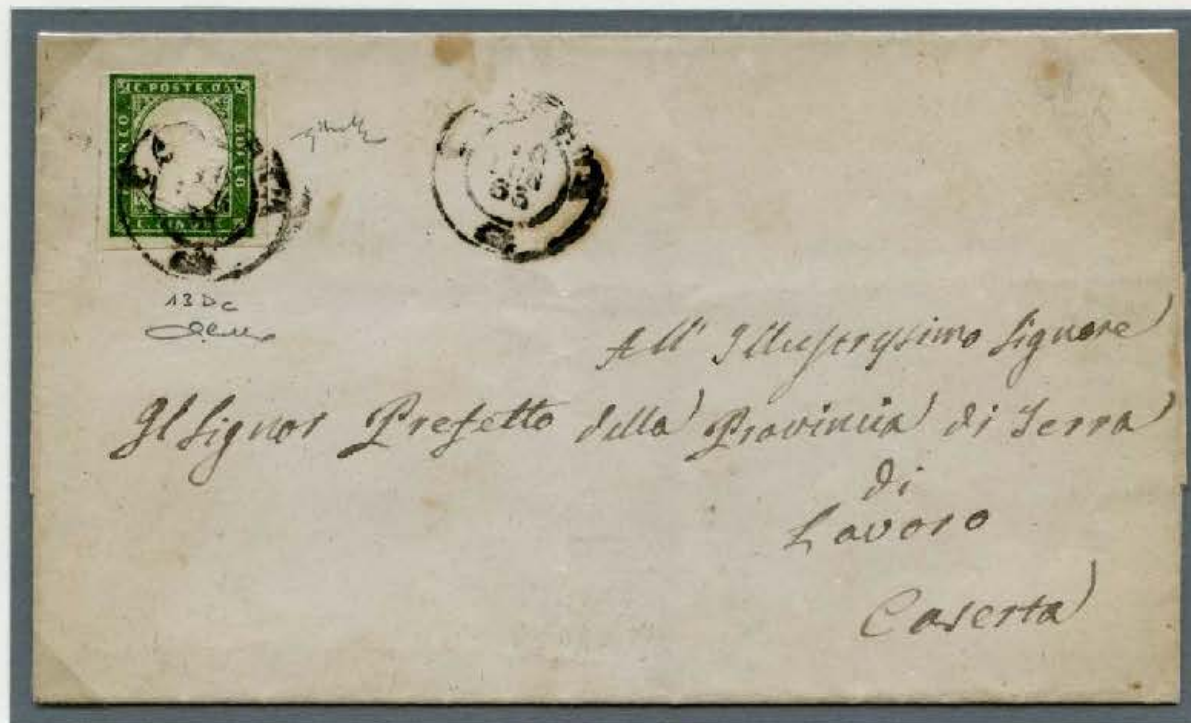 C. POSTE 05
FRANCO
BOLLO
C. CINQUE
10
GIU
63
13 Dc
All' Illustrissimo Signore
Il Signor Prefetto della Provincia di Terra
di
Lavoro
Caserta